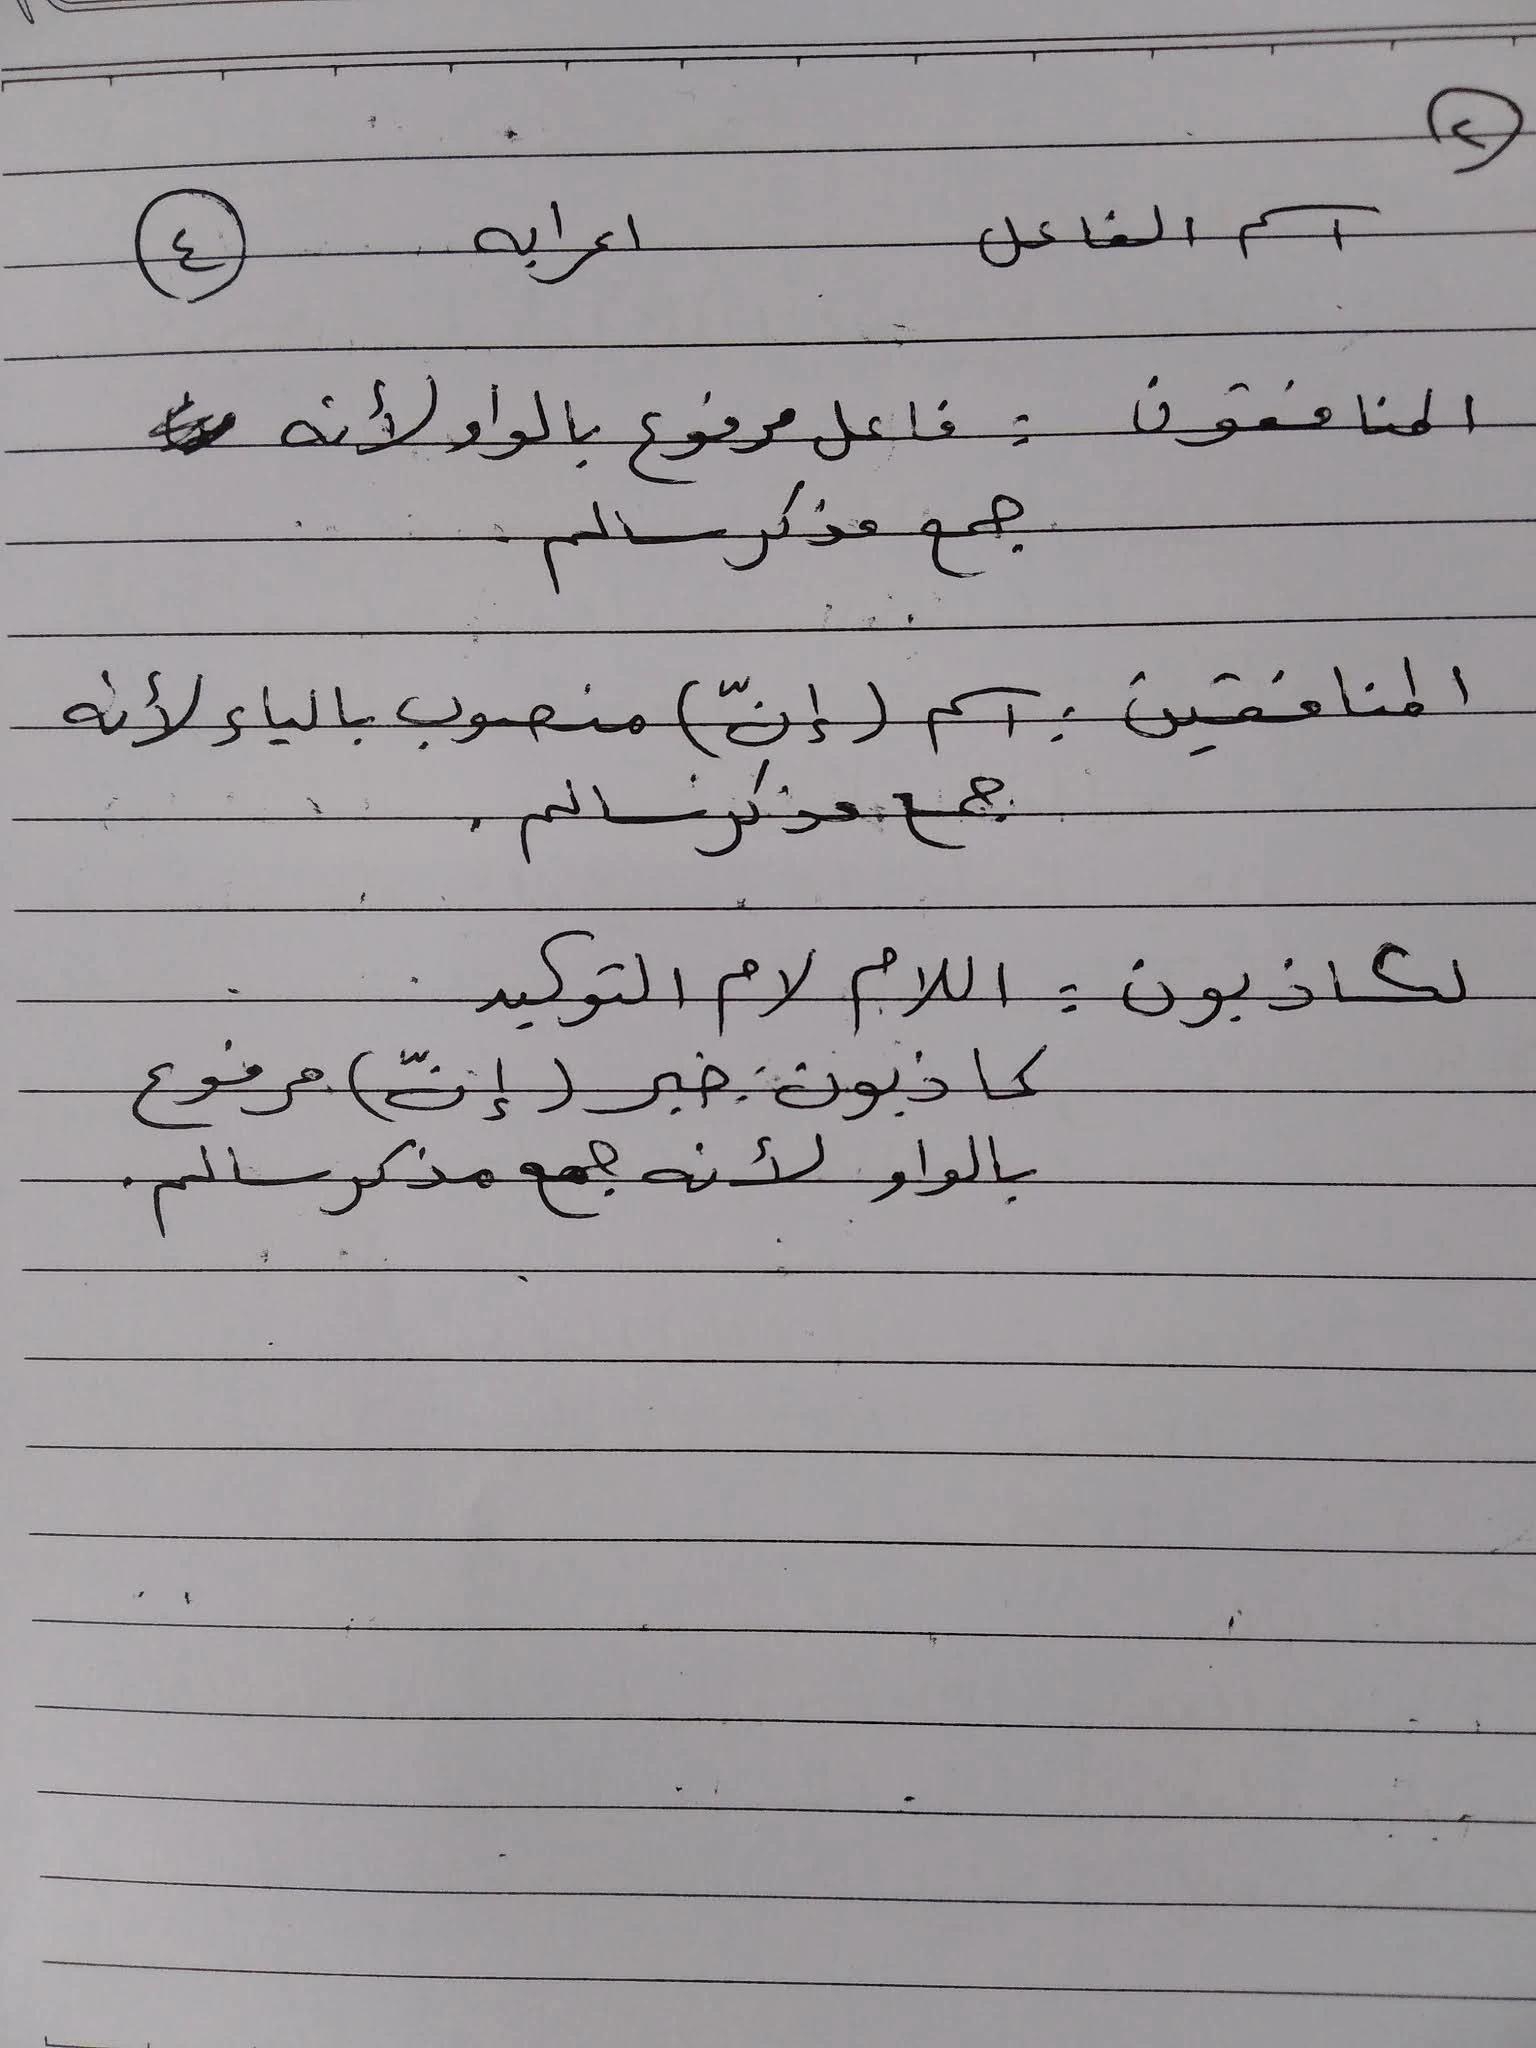 ٢
اسم الفاعل اعرابه ٤
المنافقون : فاعل مرفوع بالواو لأنه
جمع مذكر سالم.
المنافقين : اسم (إنّ) منصوب بالياء لأنه
جمع مذكر سالم.
لكاذبون : اللام لام التوكيد
كاذبون : خبر (إنّ) مرفوع
بالواو لأنه جمع مذكر سالم.